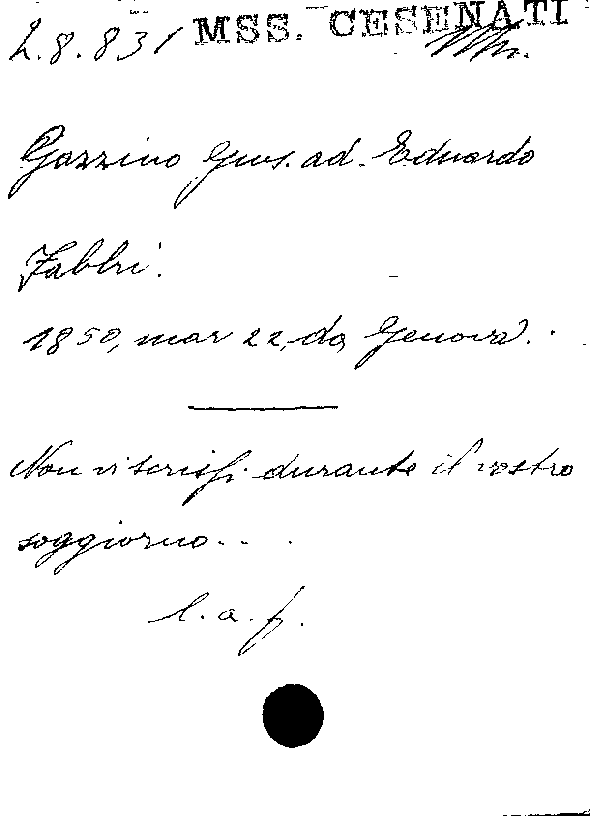 2.8.831 MSS. CESENATI
Gazzino Gius. ad Eduardo
Fabbri.
1850, mar 22, da Genova.
Non vi scrissi durante il vostro
soggiorno...
l. a. f.